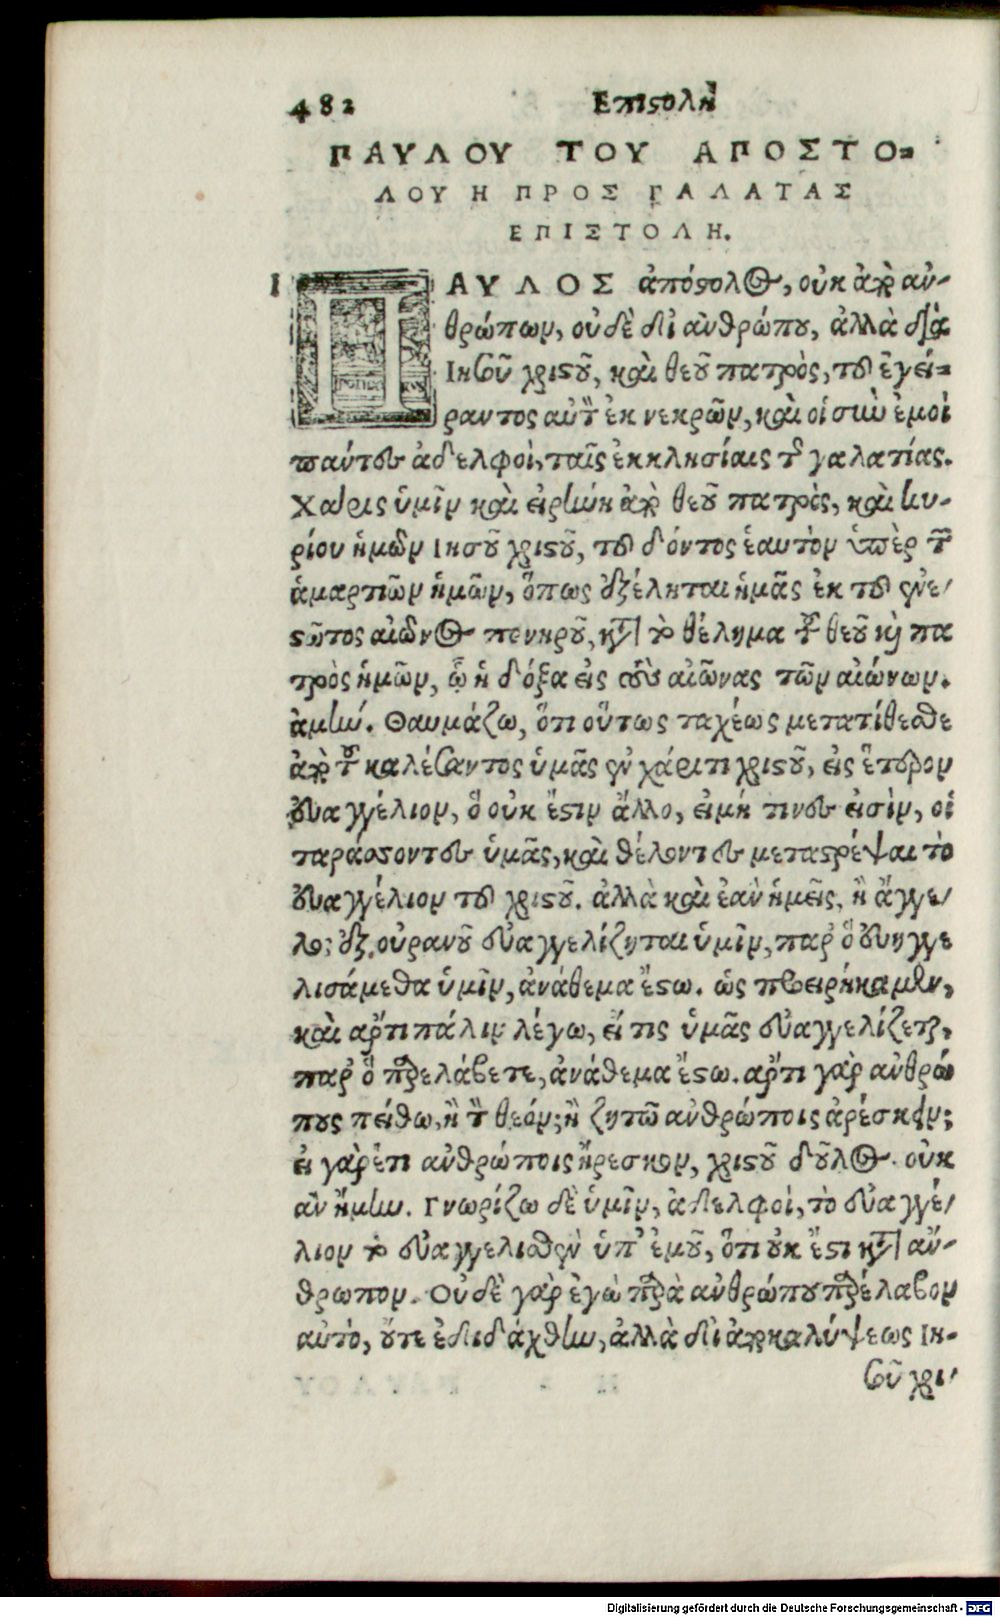 482 Επιϛολὴ
ΠΑΥΛΟΥ ΤΟΥ ΑΠΟΣΤΟ-
ΛΟΥ Η ΠΡΟΣ ΓΑΛΑΤΑΣ
ΕΠΙΣΤΟΛΗ.
1 ΠΑΥΛΟΣ ἀπόϛολος, οὐκ ἀπ' ἀν-
θρώπων, οὐδὲ δι ἀνθρώπου, ἀλλὰ διὰ
Ιησοῦ χριϛοῦ, καὶ θεοῦ πατρὸς, τοῦ ἐγεί-
ραντος αὐτὸν ἐκ νεκρῶν, καὶ οἱ σὺν ἐμοὶ
πάντες ἀδελφοὶ, ταῖς ἐκκλησίαις τῆς γαλατίας.
Χάρις ὑμῖν καὶ εἰρήνη ἀπὸ θεοῦ πατρὸς, καὶ κυ-
ρίου ἡμῶν Ιησοῦ χριϛοῦ, τοῦ δόντος ἑαυτὸν ὑπὲρ τῶν
ἁμαρτιῶν ἡμῶν, ὅπως ἐξέληται ἡμᾶς ἐκ τοῦ ἐνε-
ϛῶτος αἰῶνος πονηροῦ, κατὰ τὸ θέλημα τοῦ θεοῦ καὶ πα
τρὸς ἡμῶν, ᾧ ἡ δόξα εἰς τοὺς αἰῶνας τῶν αἰώνων.
ἀμήν. Θαυμάζω, ὅτι οὕτως ταχέως μετατίθεσθε
ἀπὸ τοῦ καλέσαντος ὑμᾶς ἐν χάριτι χριϛοῦ, εἰς ἕτερον
εὐαγγέλιον, ὃ οὐκ ἔϛιν ἄλλο, εἰμή τινες εἰσὶν, οἱ
ταράσσοντες ὑμᾶς, καὶ θέλοντες μεταϛρέψαι τὸ
εὐαγγέλιον τοῦ χριϛοῦ. ἀλλὰ καὶ ἐὰν ἡμεῖς, ἢ ἄγγε-
λος ἐξ οὐρανοῦ εὐαγγελίζηται ὑμῖν, παρ' ὃ εὐηγγε
λισάμεθα ὑμῖν, ἀνάθεμα ἔϛω. ὡς προειρήκαμεν,
καὶ ἄρτι πάλιν λέγω, εἴ τις ὑμᾶς εὐαγγελίζεται,
παρ' ὃ παρελάβετε, ἀνάθεμα ἔϛω. ἄρτι γὰρ ἀνθρώ
πους πείθω, ἢ τὸν θεόν; ἢ ζητῶ ἀνθρώποις ἀρέσκειν;
εἰ γὰρ ἔτι ἀνθρώποις ἤρεσκον, χριϛοῦ δοῦλος οὐκ
ἂν ἤμην. Γνωρίζω δὲ ὑμῖν, ἀδελφοὶ, τὸ εὐαγγέ-
λιον τὸ εὐαγγελισθὲν ὑπ' ἐμοῦ, ὅτι οὐκ ἔϛι κατὰ ἄν-
θρωπον. Οὐδὲ γὰρ ἐγὼ παρὰ ἀνθρώπου παρέλαβον
αὐτὸ, οὔτε ἐδιδάχθην, ἀλλὰ δι ἀποκαλύψεως Ιη-
σοῦ χρι-
Digitalisierung gefördert durch die Deutsche Forschungsgemeinschaft - DFG